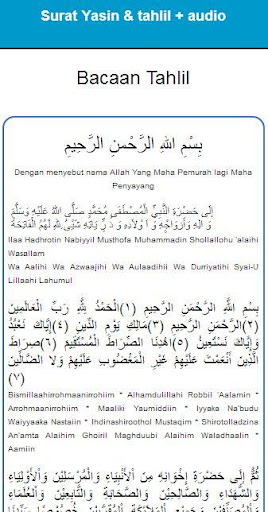 Surat Yasin & tahlil + audio
Bacaan Tahlil
بِسْمِ اللهِ الرَّحْمنِ الرَّحِيمِ
Dengan menyebut nama Allah Yang Maha Pemurah lagi Maha
Penyayang
إِلَى حَضْرَةِ النَّبِيِّ الْمُصْطَفَى مُحَمَّدٍ صَلَّى اللهُ عَلَيْهِ وَسَلَّمَ
وَآلِهِ وَأَزْوَاجِهِ وَ اَوْلَادِهِ وَ ذُرِّيَّاتِهِ شَيْءٌ لِلّٰهِ لَهُمُ الْفَاتِحَةُ
Ilaa Hadhrotin Nabiyyil Musthofa Muhammadin Shollallohu 'alaihi
Wasallam
Wa Aalihi Wa Azwaajihi Wa Aulaadihii Wa Durriyatihi Syai-U
Lillaahi Lahumul
بِسْمِ اللهِ الرَّحْمنِ الرَّحِيمِ (١)اَلْحَمْدُ لِلّٰهِ رَبِّ الْعَالَمِينَ
(٢)الرَّحْمنِ الرَّحِيمِ (٣)مَالِكِ يَوْمِ الدِّينِ (٤)إِيَّاكَ نَعْبُدُ
وَإِيَّاكَ نَسْتَعِينُ (٥)اهْدِنَا الصِّرَاطَ الْمُسْتَقِيمَ (٦)صِرَاطَ
الَّذِينَ أَنْعَمْتَ عَلَيْهِمْ غَيْرِ الْمَغْضُوبِ عَلَيْهِمْ وَلَا الضَّالِّينَ
(٧)
Bismillaahirrohmaanirrohiim * Alhamdulillahi Robbil 'Aalamin *
Arrohmaanirrohiim * Maaliki Yaumiddiin * Iyyaka Na'budu
Waiyyaaka Nastaiin * Ihdinashiroothol Mustaqim * Shirotolladzina
An'amta Alaihim Ghoiril Maghduubi Alaihim Waladhaalin *
Aamiin
ثُمَّ إِلَى حَضْرَةِ إِخْوَانِهِ مِنَ الْأَنْبِيَاءِ وَالْمُرْسَلِينَ وَالْأَوْلِيَاءِ
وَالشُّهَدَاءِ وَالصَّالِحِينَ وَالصَّحَابَةِ وَالتَّابِعِينَ وَالْعُلَمَاءِ